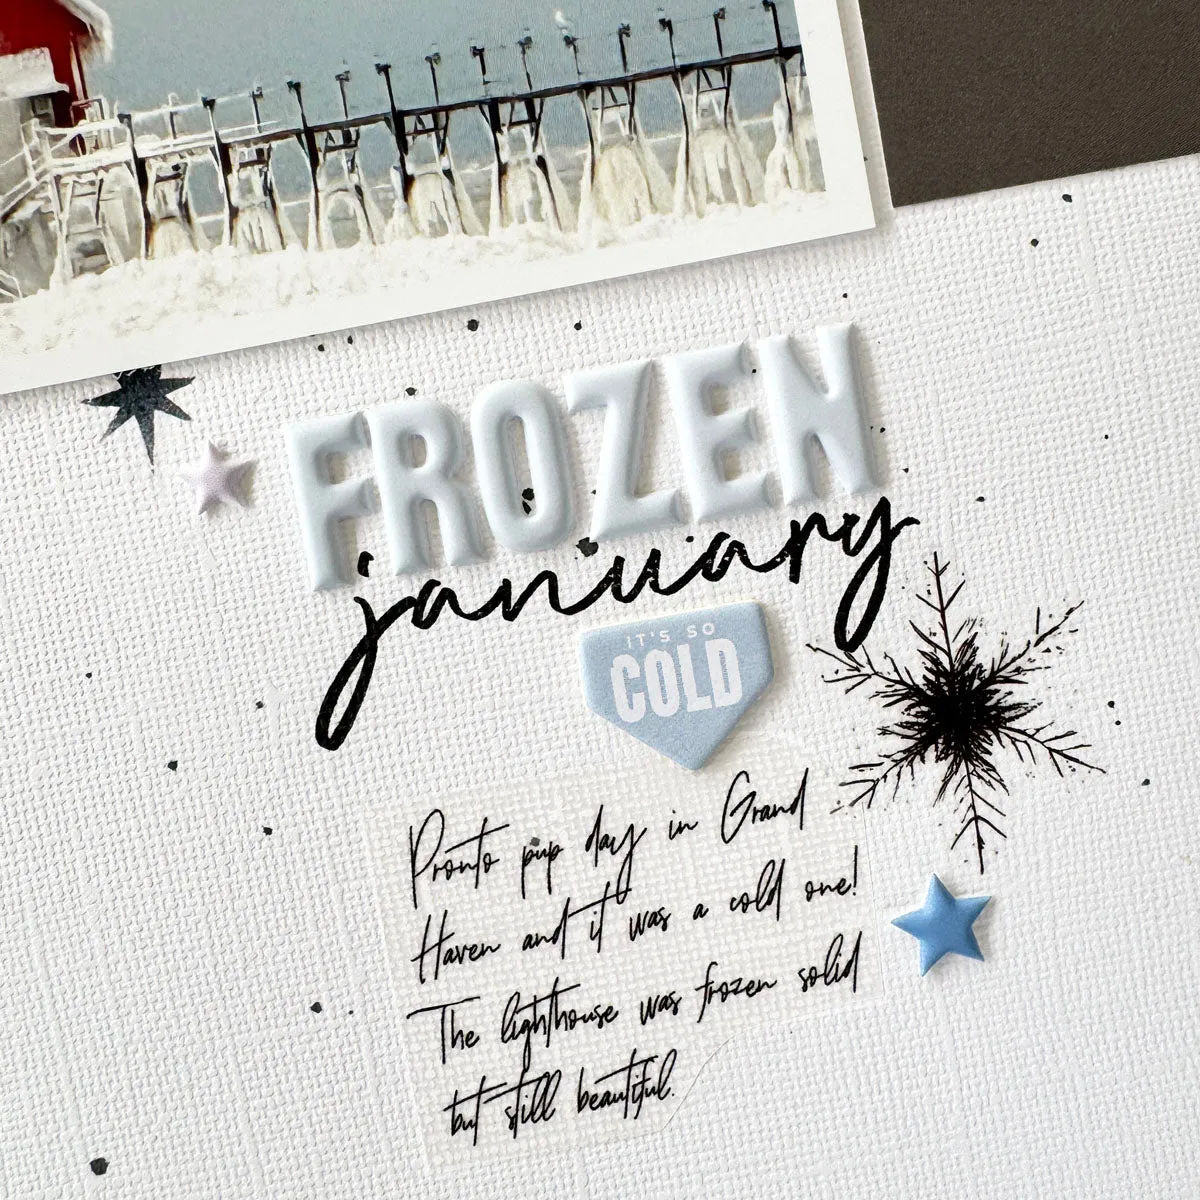 FROZEN
january
IT'S SO
COLD
Pronto pup day in Grand
Haven and it was a cold one!
The lighthouse was frozen solid
but still beautiful.